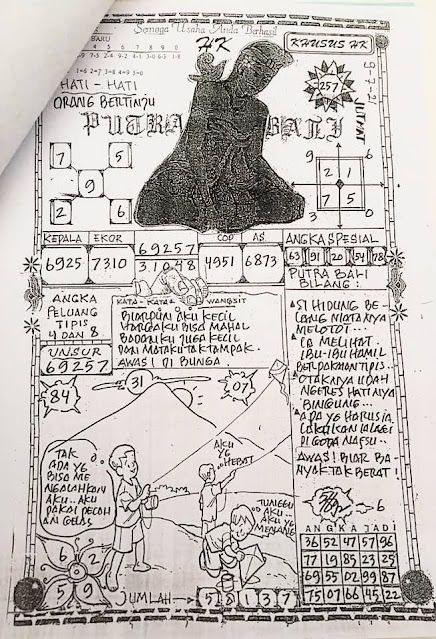 Semoga Usaha Anda Berhasil
HK
KHUSUS HK
BARU
1=6 2=7 3=8 4=9 5=0
HATI - HATI
ORANG BERTINJU
257
9-7-21
JUM'AT
PUTRA BALI
7 5
9
2 6
9 6
2 1
7 5
3 0
KEPALA EKOR
6925 7310
69257
31048
COP AS
4951 6873
ANGKA SPESIAL
63 91 20 54 78
PUTRA BALI
BILANG :
ANGKA
PELUANG
TIPIS
4 DAN 8
UNSUR
69257
KATA - KATA WANGSIT
BIARPUN AKU KECIL
HARGAKU BISA MAHAL
BADANKU JUGA KECIL
DAN MATAKU TAK TAMPAK.
AWAS ! DI BUNGA.
SI HIDUNG BE
LANG MATANYA
MELOTOT...
IA MELIHAT
IBU-IBU HAMIL
BERPAKAIAN TIPIS.
OTAKNYA UDAH
NGERES HATINYA
BINGUNG...
ADA YG HARUS IA
LAKUKAN LALAGI
DI GODA NAFSU..
AWAS ! BIAR BA-
NYAK TAK BERAT !
84
31
07
TAK
ADA YG
BISA ME
NGALAHKAN
AKU.. AKU
PAKAI PECAH
AN GELAS
AKU
YG
HEBAT
TUNGGU
AKU..
AKU YG
MENANG
6
6 2
5 9
JUMLAH
5 8 1 3 7
ANGKA JADI
36 52 47 57 96
77 19 85 23 25
69 55 02 99 87
75 07 66 45 22